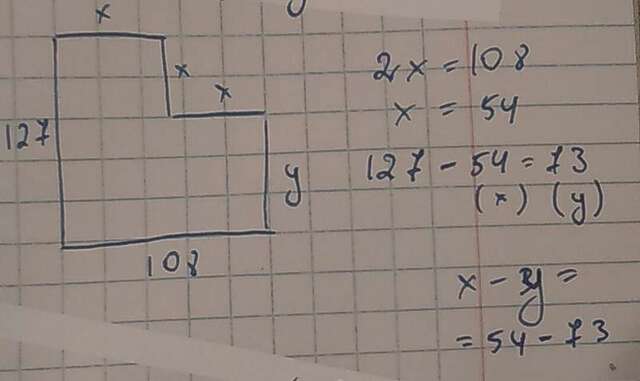 x
x
x
127
y
108
2x = 108
x = 54
127 - 54 = 73
(x) (y)
x - y =
= 54 - 73